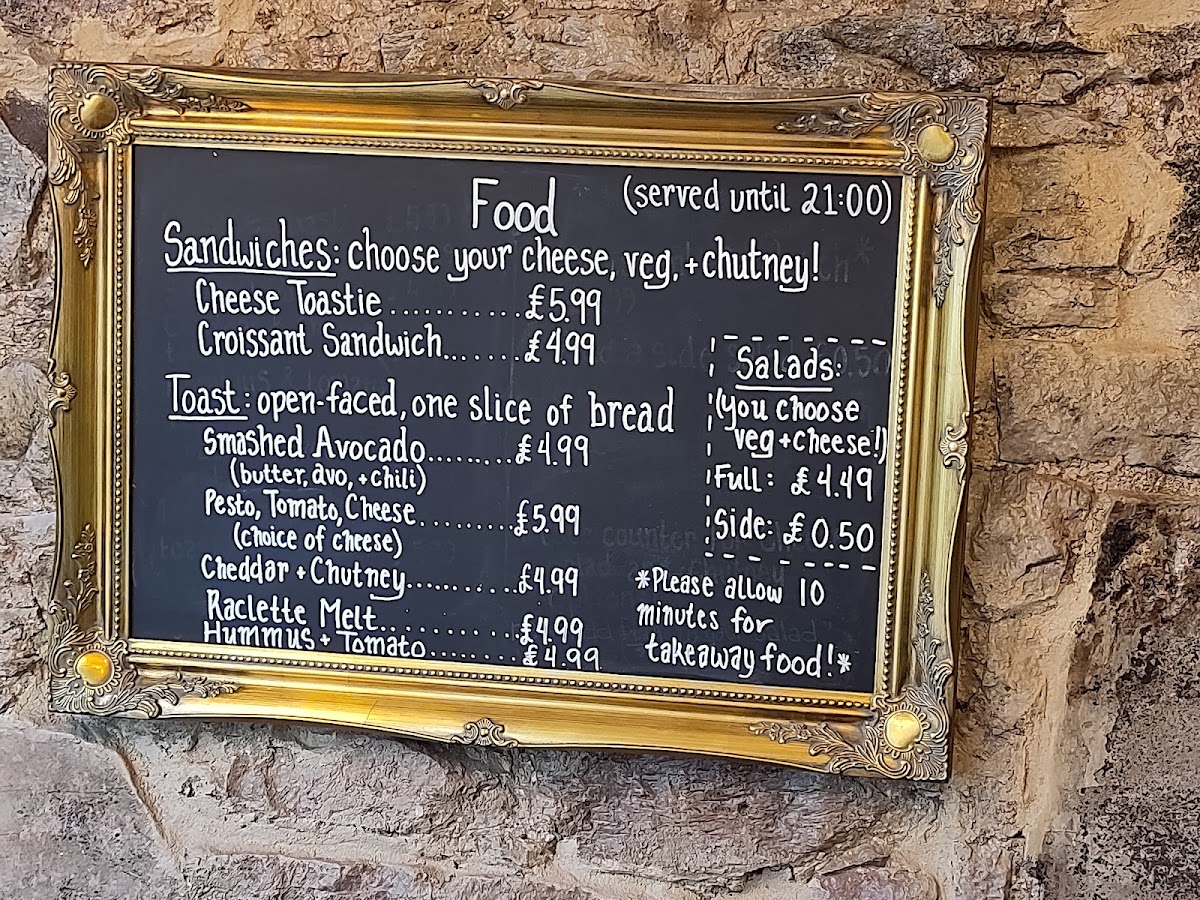 Food (served until 21:00)
Sandwiches: choose your cheese, veg, + chutney!
Cheese Toastie ........... £5.99
Croissant Sandwich....... £4.99
Toast: open-faced, one slice of bread
Smashed Avocado......... £4.99
(butter, avo, + chili)
Pesto, Tomato, Cheese......... £5.99
(choice of cheese)
Cheddar + Chutney........... £4.99
Raclette Melt............ £4.99
Hummus + Tomato........ £4.99
Salads:
(you choose
veg + cheese!)
Full: £4.49
Side: £0.50
*Please allow 10
minutes for
takeaway food!*